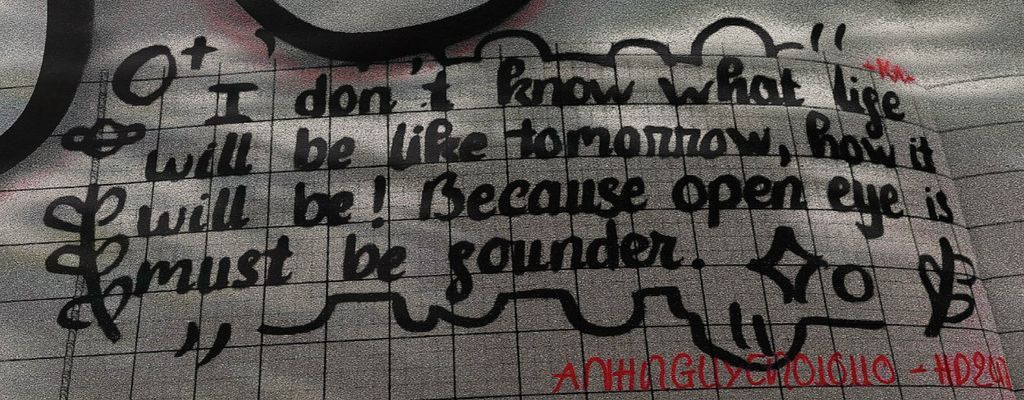 I don't know what life
will be like tomorrow, how it
will be! Because open eye is
must be sounder.